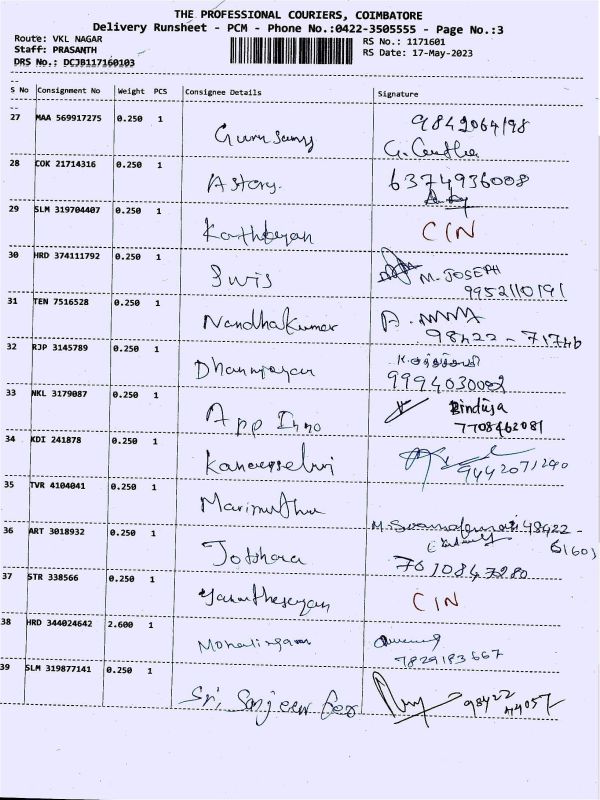 THE PROFESSIONAL COURIERS, COIMBATORE
Delivery Runsheet - PCM - Phone No.:0422-3505555 - Page No.:3
Route: VKL NAGAR
RS No.: 1171601
Staff: PRASANTH
RS Date: 17-May-2023
DRS No.: DCJB117160103
S No Consignment No Weight PCS Consignee Details Signature
27 MAA 569917275 0.250 1 Gurusamy 9842064198
28 COK 21714316 0.250 1 A story. 6374936008
29 SLM 319704407 0.250 1 Karthikeyan CIN
30 HRD 374111792 0.250 1 Swis M. JOSEPH
9952110191
31 TEN 7516528 0.250 1 Nandhakumar
98422 - 71746
32 RJP 3145789 0.250 1 Dhananjayan
9994030082
33 NKL 3179087 0.250 1 App Inno Bindusa
7708462081
34 KDI 241878 0.250 1 9442071290
35 TVR 4104041 0.250 1 Marimuthu
48422 -
61601
36 ART 3018932 0.250 1 Jothhara 7010847280
37 STR 338566 0.250 1 CIN
38 HRD 344024642 2.600 1 Mohalingam
7829183667
39 SLM 319877141 0.250 1 Sri Sanjeev 98422
44057